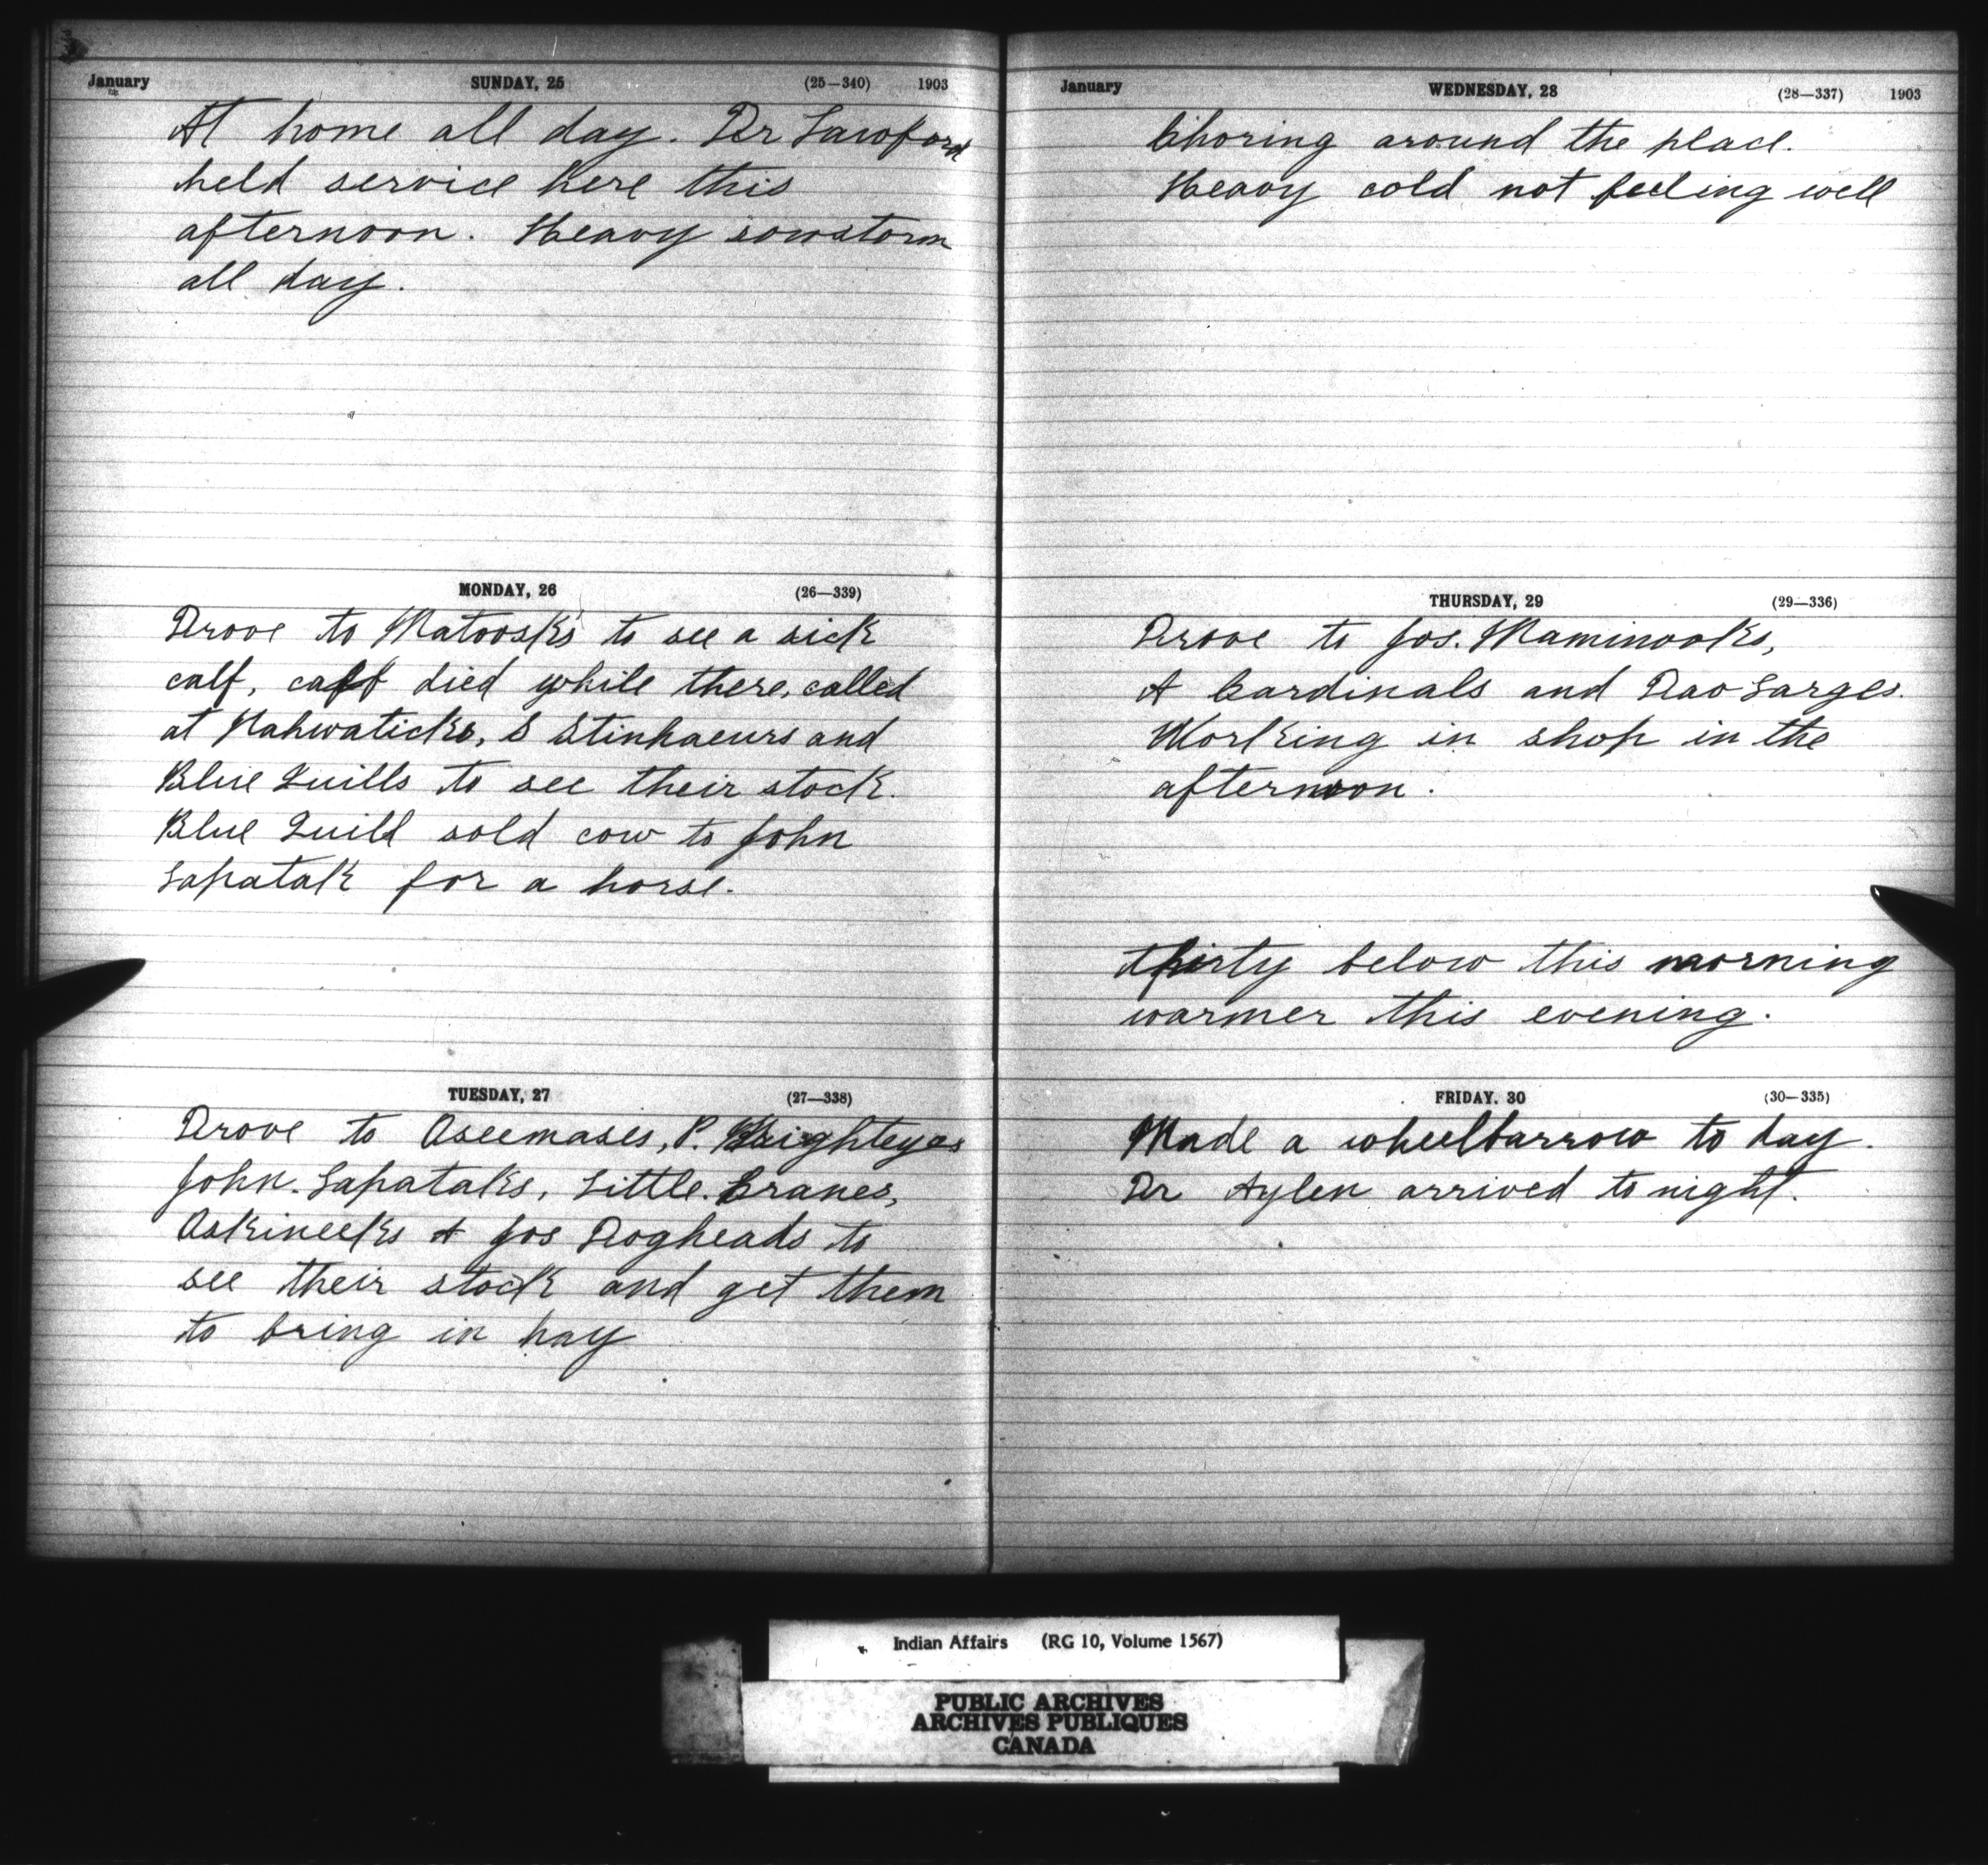 January SUNDAY, 25 (25—340) 1903
At home all day. Dr Lawford
held service here this
afternoon. Heavy sowstorm
all day.
MONDAY, 26 (26—339)
Drove to Matoosks to see a sick
calf, calf died while there, called
at Nahwaticks, S Stinhaeurs and
Blue Quills to see their stock.
Blue Quill sold cow to John
Lapatak for a horse.
TUESDAY, 27 (27—338)
Drove to Aseemases, P. Brighteyes
John. Lapataks, Little. Cranes,
Askineeks & Jos Dogheads to
see their stock and get them
to bring in hay
January WEDNESDAY, 28 (28—337) 1903
Choring around the place.
Heavy cold not feeling well
THURSDAY, 29 (29—336)
Drove to Jos. Maminooks,
A Cardinals and Dao Larges.
Working in shop in the
afternoon.
thirty below this morning
warmer this evening.
FRIDAY. 30 (30—335)
Made a wheelbarrow to day.
Dr Aylen arrived to night.
Indian Affairs (RG 10, Volume 1567)
PUBLIC ARCHIVES
ARCHIVES PUBLIQUES
CANADA